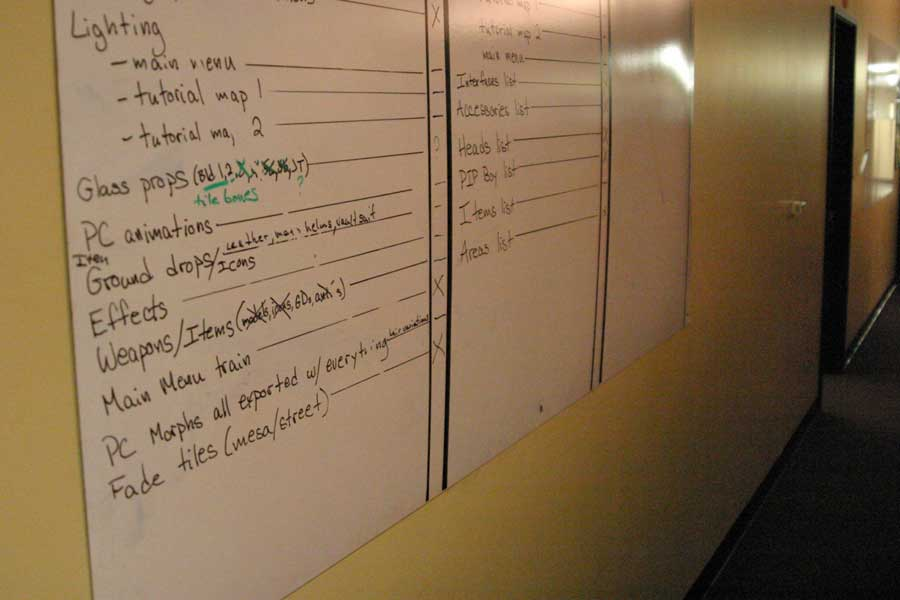 Lighting
- main menu
- tutorial map 1
- tutorial ma, 2
Glass props (Bld 1, 2,
tile bones ?
PC animations
Item
Ground drops/leather, helms, vault suit
Icons
Effects
Weapons/Items (models, icons, GDs, anth's)
Main Menu train
PC Morphs all exported w/ everything hair variations
Fade tiles (mesa/street)
tutorial map 1
tutorial map 2
main menu
Interfaces list
Accessories list
Heads list
PIP Boy list
Items list
Areas list